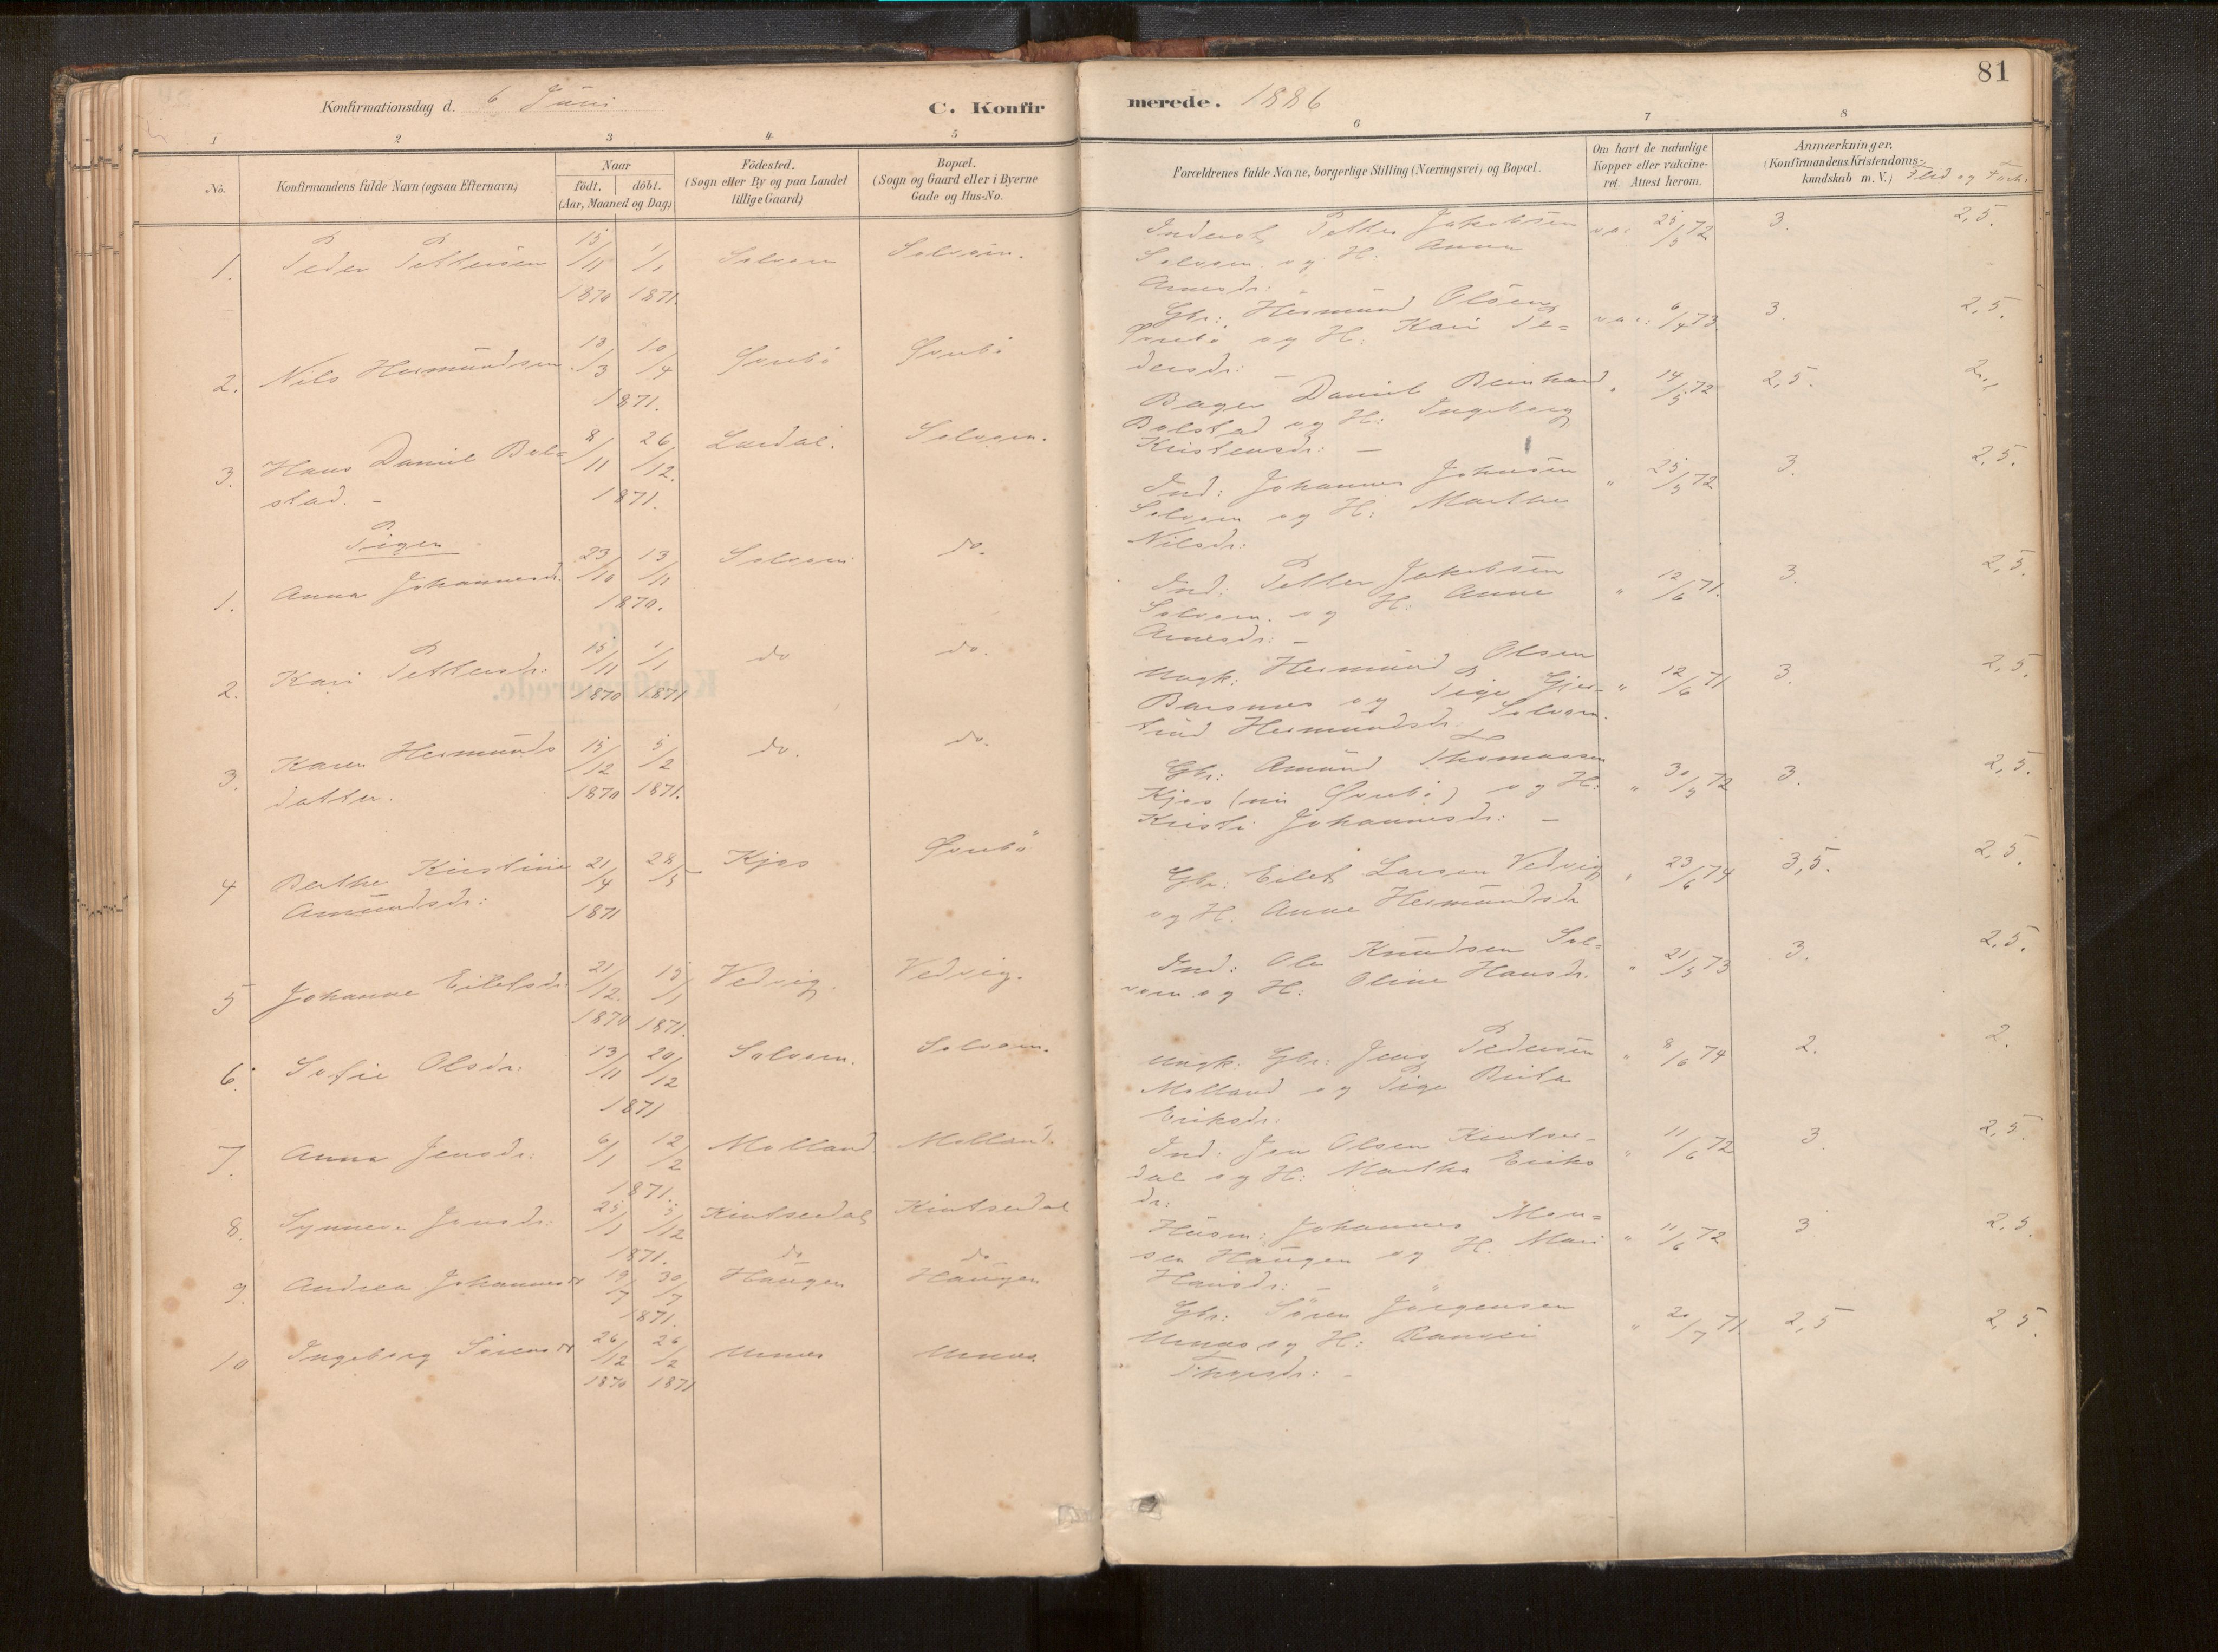 81
Konfirmationsdag d. 6 Juni
C. Konfirmerede. 1886
1 2 3 4 5 6 7 8
No.
Konfirmandens fulde Navn (ogsaa Efternavn)
Naar
födt. döbt.
(Aar, Maaned og Dag)
Födested.
(Sogn eller By og paa Landet
tillige Gaard)
Bopæl.
(Sogn og Gaard eller i Byerne
Gade og Hus-No.
Forældrenes fulde Navne, borgerlige Stilling (Næringsvei) og Bopæl.
Om havt de naturlige
Kopper eller vakcine-
ret. Attest herom.
Anmærkninger.
(Konfirmandens Kristendoms-
kundskab m. V.) Flid og Forh.
1. Peder Pettersen 15/11 1870 1/1 1871. Solvorn Solvorn.
Inderst Petter Jakobsen
Solvorn og H: Anna
Arnesdr:
vac 25/5 72 3. 2,5.
2. Nils Hermundsen 13/3 10/4 1871. Ørrebö Ørrebö
Gbr: Hermund Olsen
Ørrebö og H. Kari Pe-
dersdr: –
vac: 6/4 73. 3. 2,5.
3. Hans Daniel Bol-
stad. – 8/11 26/12. 1871. Lærdal. Solvorn.
Bager Daniel Bernhard
Bolstad og H: Ingeborg
Kristensdr: –
" 14/5 72 2,5. 2.
Piger
1. Anna Johannesdr. 23/10 13/11 1870. Solvorn do.
Ind: Johannes Johnsen
Solvorn og H: Marthe
Nilsdr:
" 25/5 72 3. 2,5.
2. Kari Pettersdr: 15/11 1870 1/1 1871 do do.
Ind: Petter Jakobsen
Solvorn. og H: Anne
Arnesdr: –
" 12/6 71. 3. 2,5.
3. Karen Hermunds
datter. 15/12 1870 5/2 1871. do. do.
Ungk: Hermund Olsen
Barsnes og Pige Gjer-
trud Hermundsdr: Solvorn.
" 12/6 71 3. 2,5.
4 Berthe Kirstine
Amundsdr: 21/4 28/5 1871 Kjos Ørrebö
Gbr: Amund Thomassen
Kjos (nu Ørrebö) og H:
Kristi Johannesdr: –
" 30/5 72 3. 2,5.
5 Johanne Eilefsdr: 21/12. 1870 15/1 1871. Vedvig. Vedvig.
Gbr: Eilef Larsen Vedvig
og H. Anne Hermundsdr
" 23/6 74 3,5. 2,5.
6. Sofie Olsdr: 13/11 20/12 1871 Solvorn. Solvorn.
Ind: Ole Knudsen Sol-
vorn og H: Oline Hansdr.
" 21/5 73 3. 2,5.
7. Anna Jensdr: 6/1 12/2 1871. Molland Molland.
Ungk: Gbr: Jens Pedersen
Molland og Pige Brita
Eriksdr:
" 8/6 74 2. 2.
8. Synneve Jensdr: 25/1 5/12 1871. Kintsedal Kintsedal
Ind: Jen Olsen Kintse-
dal og H: Martha Eriks
dr:
" 11/6 72 3. 2,5.
9. Andrea Johannesdr 19/7 30/7 1871. do Haugen do Haugen
Husm: Johannes Mon-
sen Haugen og H. Mari
Hansdr:
" 11/6 72 3 2,5.
10 Ingeborg Sörensdr 26/12 1870 26/2 1871 Urnes Urnes.
Gbr: Sören Jörgensen
Urnes og H: Ranvei
Thorsdr: –
" 20/7 71. 2,5 2,5.